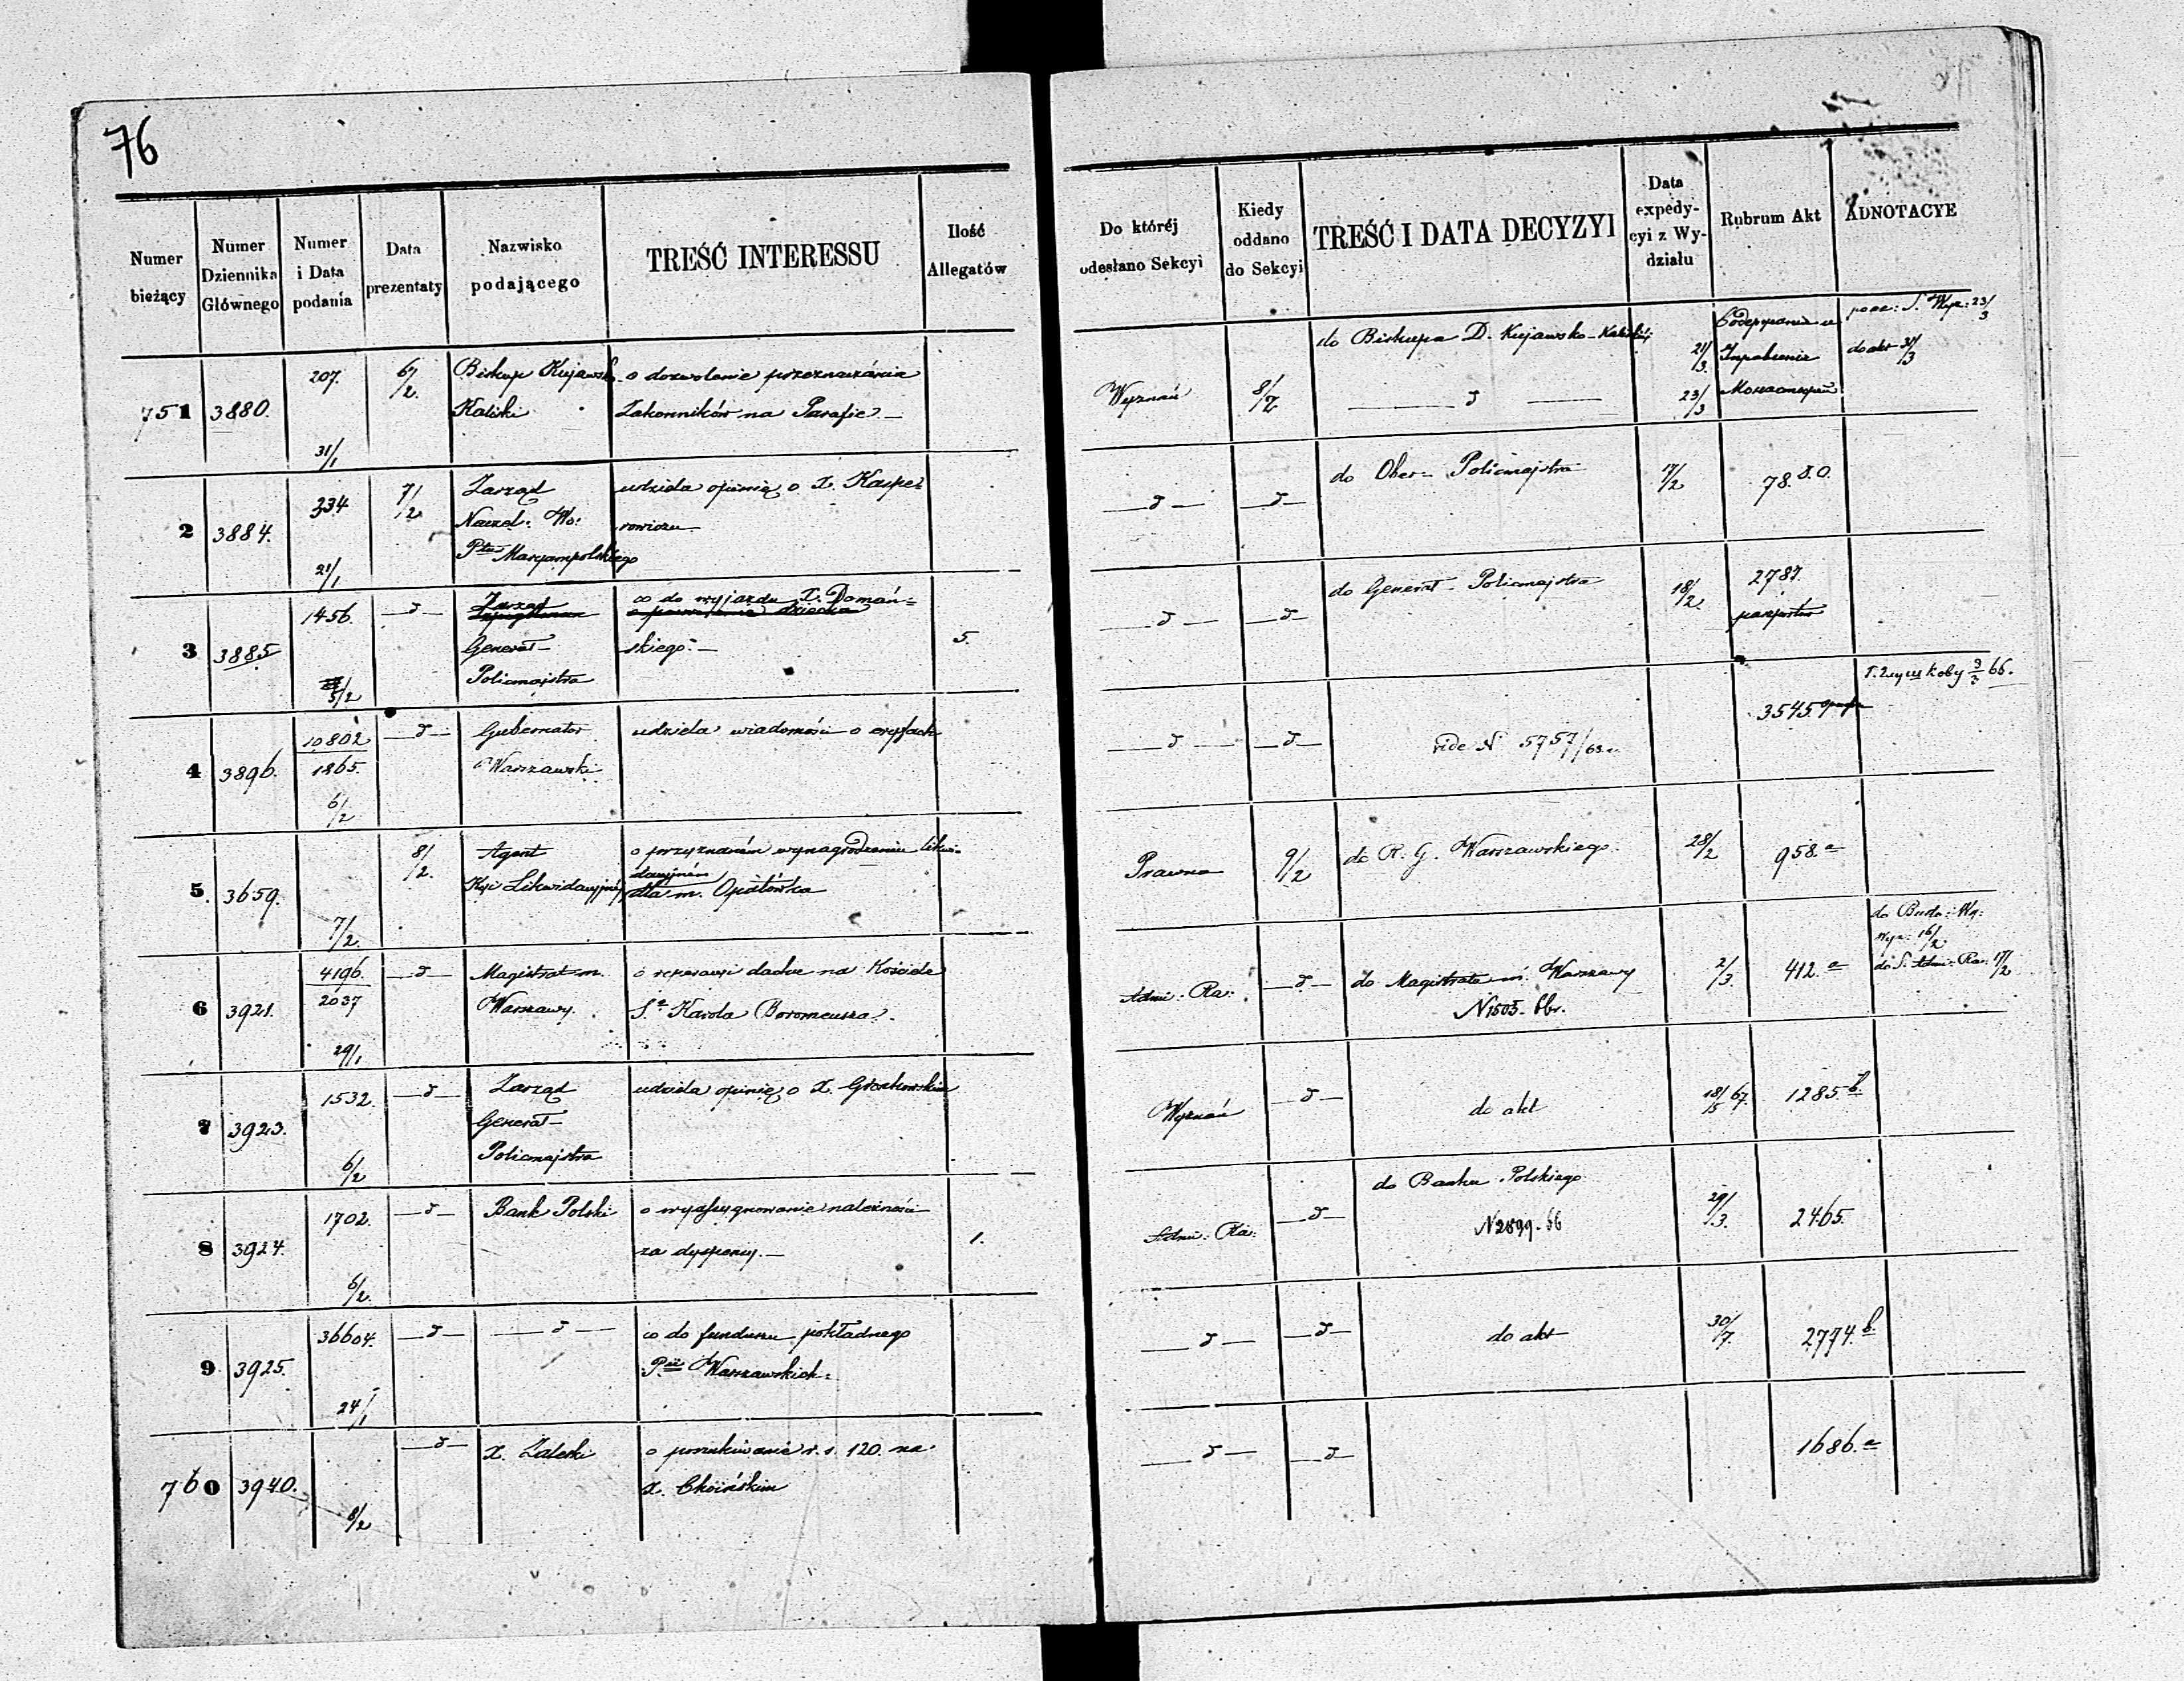 76
Numer bieżący
Numer Dziennika Głównego
Numer i Data podania
Data prezentaty
Nazwisko podającego
TREŚĆ INTERESSU
Ilość Allegatów
Do któréj odesłano Sekcyi
Kiedy oddano do Sekcyi
TREŚĆ I DATA DECYZYI
Data expedycyi z Wydziału
Rubrum Akt
ADNOTACYE
751 3880. 207. 31/1 6/2 Biskup Kujawsk.
Kaliski
o dozwolenie przeznaczania
Zakonników na Parafie. —
Wyznań 8/2 do Biskupa D. Kujawsko-Kaliskiej 21/3
— d — 23/3
do akt 31/3
2 3884. 334 21/1 7/2 Zarząd
Naczel: Wo:
Ptu Maryampolskiego
udziela opinię o X. Kaspe=
rowiczu
— d — — d — do Ober-Policmajstra 17/2 78.
3 3885 1456. 5/2 — d — Zarząd
Generał-
Policmajstra
co do wyjazdu X. Domań=
skiego. —
5.
— d — — d — do Generał-Policmajstra 18/2 2787.
4 3896. 10802
1865.
6/2
— d — Gubernator
Warszawski
udziela wiadomości o
— d — — d — vide N 5757/65 3545
5. 3659. 7/2. 8/2. Agent
Kyi Likwidacyjnéj
o przyznaniu wynagrodzenia likwi-
dacyjném
dla m. Opatówka
Prawna 9/2 do R. G. Warszawskiego. 28/2 958. a
6 3921. 4196.
2037
29/1
— d — Magistrat m.
Warszawy.
o reparacyi dachu na Kościele
S.o Karola Boromeusza.
Admi: Ra: — d — do Magistratu m. Warszawy
N 1505. 66r.
2/3. 412. a
do Budo:
Wyz: 16/2
do S. Admi: Ra: 17/2
7 3923. 1532. 6/2 — d — Zarząd
Generał-
Policmajstra
udziela opinię o X.
Wyznań — d — do akt 18/5 67. 1285 b.
8 3924. 1702. 6/2. — d — Bank Polski
o wyasygnowanie należności
za dyspensy. —
1.
Admi: Ra: — d — do Banku Polskiego
N 2899-66
29/3. 2465.
9 3925. 36604. 24/1 — d — — d —
co do funduszu pokładnego
Warszawskich.
— d — — d — do akt 30/7. 2774. b.
760 3940. 8/2 — d — X. Zaleski
o poszukiwanie r. s. 120. na
X. Choińskim
— d — — d — 1686. a